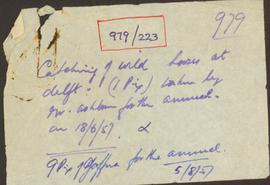 979/223
979
Catching of wild horses at
delft. (1 Pix) taken by
Mr. for the annual.
on 18/6/57
9 Pix of for the annual.
5/8/57